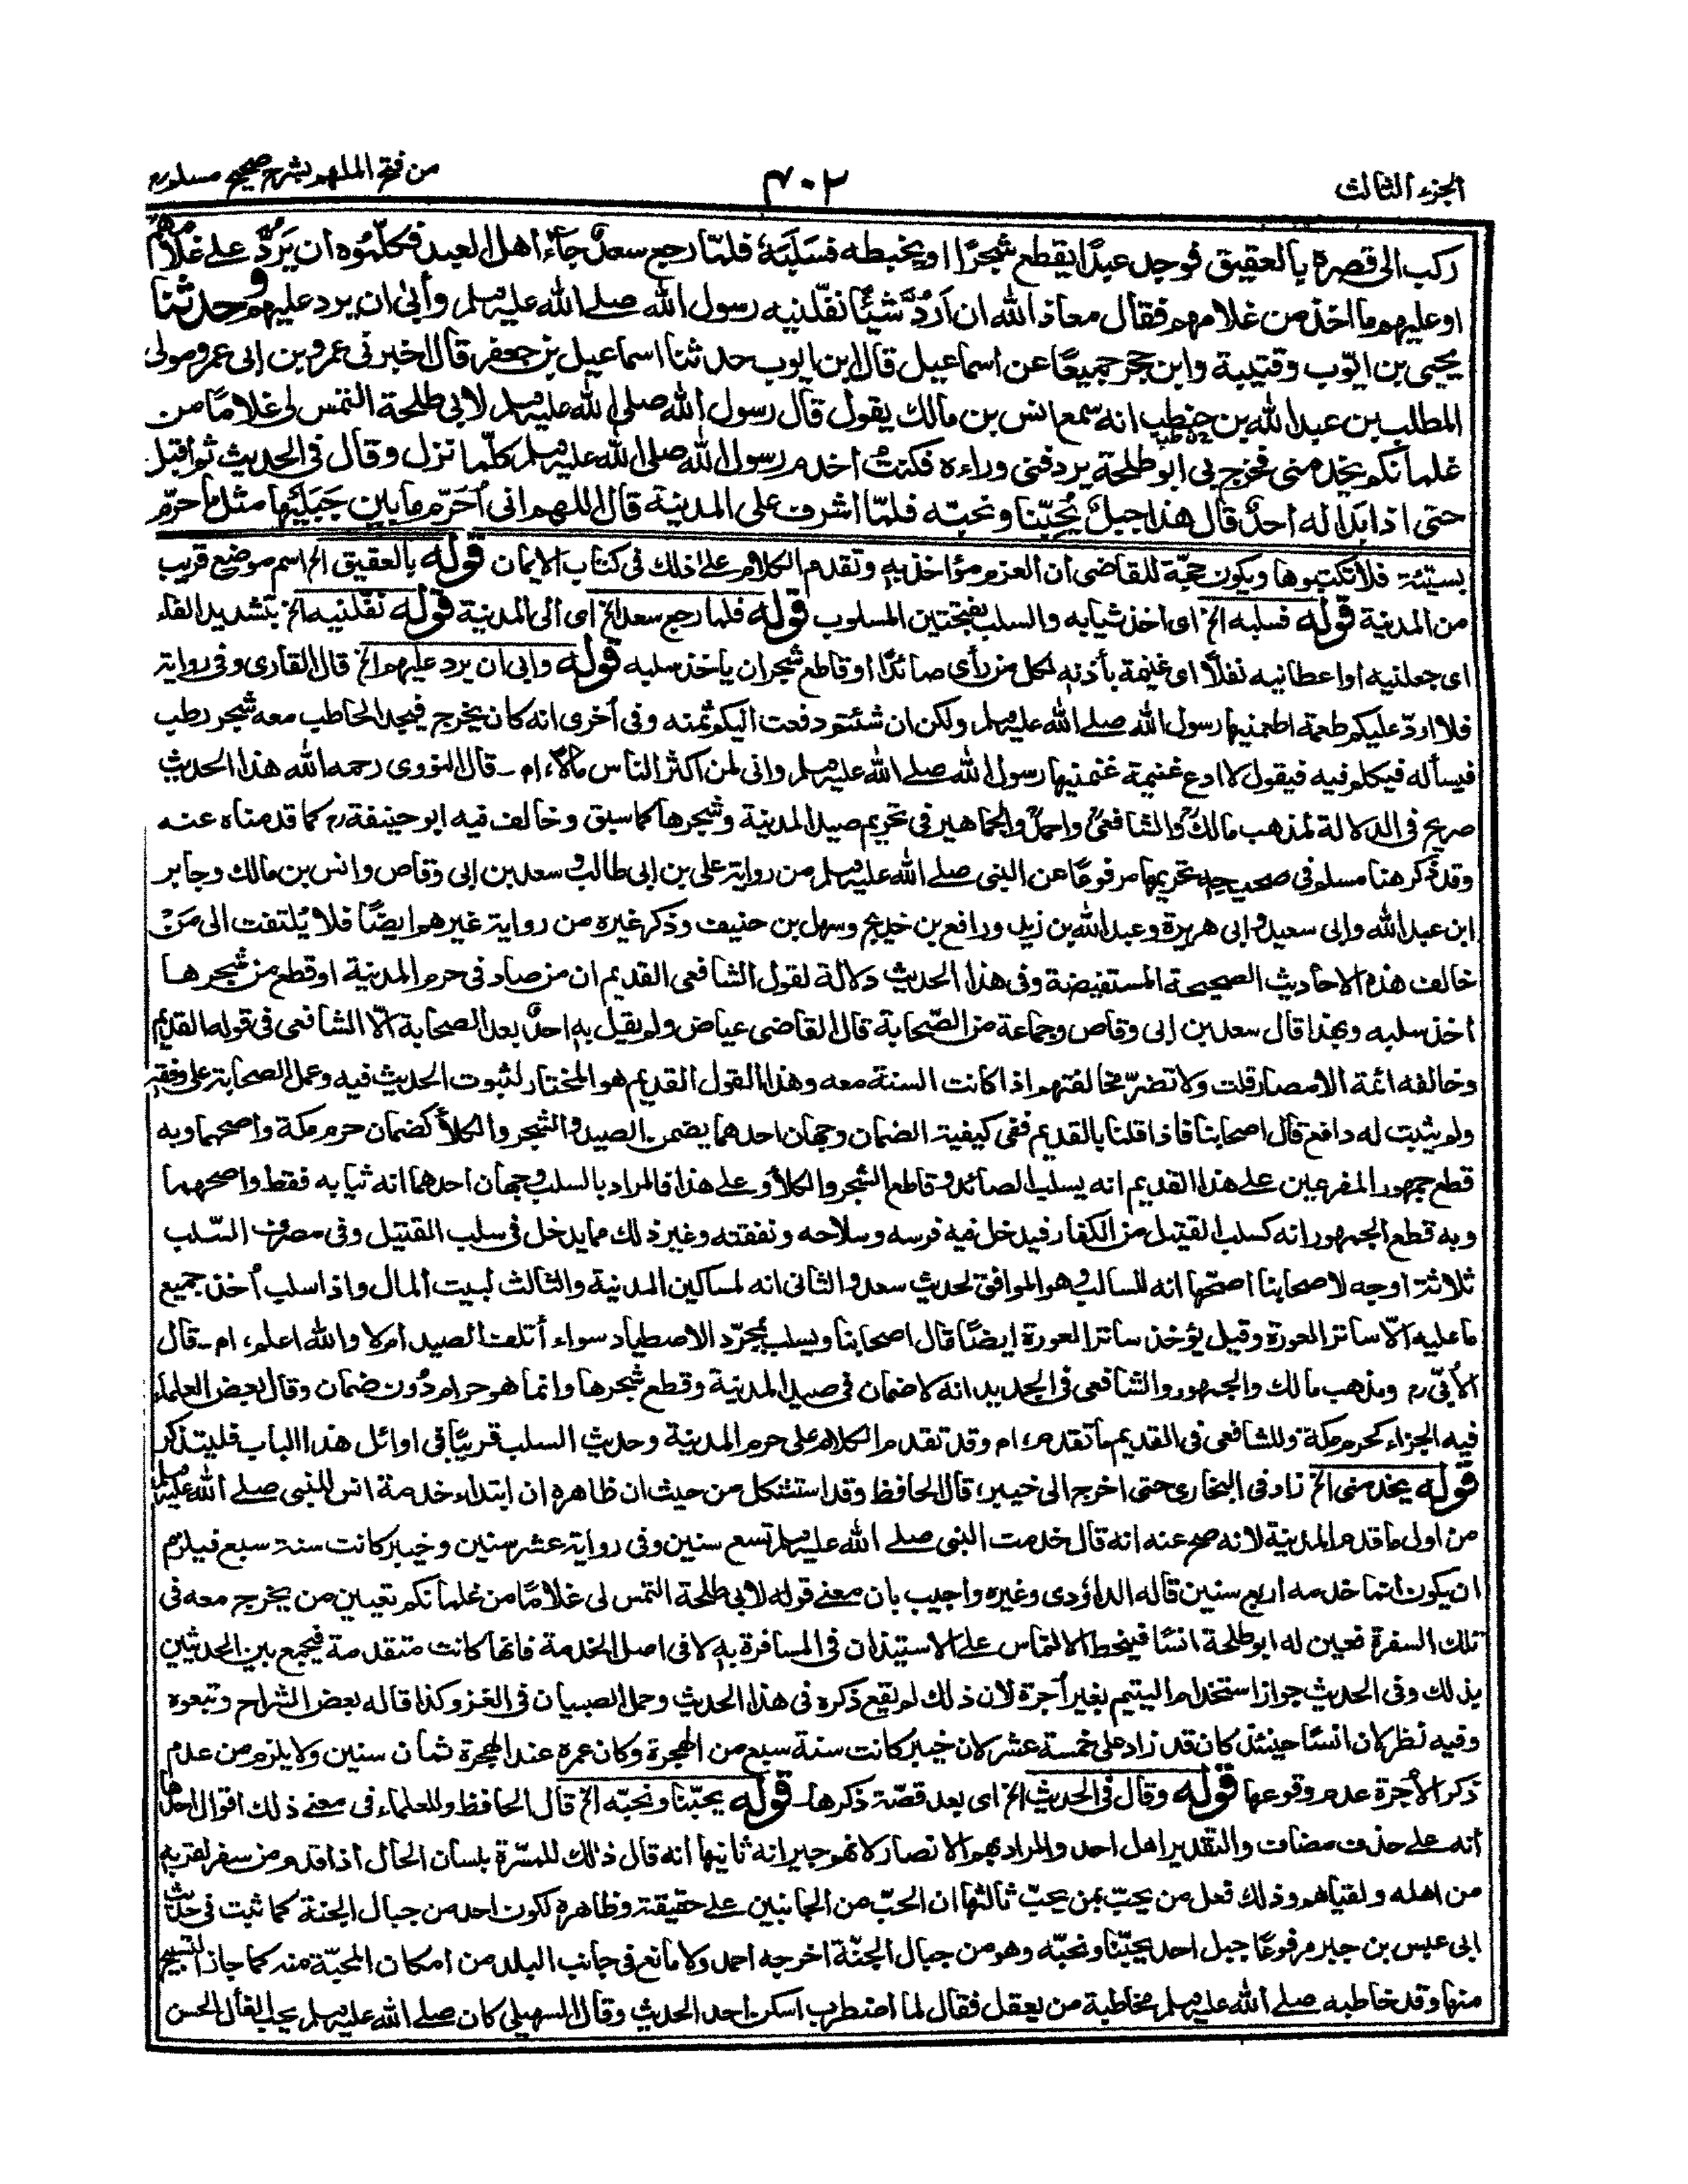 الجزء الثالث
٤٠٢
من فتح الملهم بشرح صحيح مسلم
ركب الى قصره بالعقيق فوجد عبدًا يقطع شجرًا او يخبطه فسَلَبَهٗ فلمّا رجع سعدٌ جآءَ اهل العبد فكلّموه ان يَرُدَّ على غلامهم
او عليهم ما اخذ من غلامهم فقال معاذ الله ان اَرُدَّ شَيْئًا نفّلنيه رسول الله صلى الله عليه وسلم وأبىٰ ان يرد عليهم وحدثنا
يحيى بن ايّوب وقتيبة وابن حجر جميعًا عن اسماعيل قال ابن ايوب حدثنا اسماعيل بن جعفر قال اخبرنى عمرو بن ابى عمرو مولى
المطلب بن عبد الله بن حنطب انه سمع انس بن مالك يقول قال رسول الله صلى الله عليه وسلم لابى طلحة التمس لى غلامًا من
غلمانكم يخدمنى فخرج بى ابو طلحة يردفنى وراءه فكنتُ اخدم رسول الله صلى الله عليه وسلم كلّما نزل وقال فى الحديث ثم اقبل
حتى اذا بَدَا له أحدٌ قال هذا جبلٌ يُحِبّنا ونحبّه فلمّا اشرف على المدينة قال اللهم انى أحَرّم ما بين جَبَلَيْها مثل ما حرّم
بسيئة فلا تكتبوها ويكون حجّة للقاضى ان العزم مؤاخذ به وتقدم الكلام على ذلك فى كتاب الايمان قوله بالعقيق الخ اسم موضع قريب
من المدينة قوله فسلبه الخ اى اخذ ثيابه والسلب بفتحتين المسلوب قوله فلما رجع سعد الخ اى الى المدينة قوله نفّلنيه الخ بتشديد الفاء
اى جعلنيه او اعطانيه نفلًا اى غنيمة بأذنه لكل من رأى صائدًا او قاطع شجر ان ياخذ سلبه قوله وابى ان يرد عليهم الخ قال القارى وفى رواية
فلا اردّ عليكم طعمة اطعمنيها رسول الله صلى الله عليه وسلم ولكن ان شئتم دفعت اليكم ثمنه وفى أخرى انه كان يخرج فيجد الحاطب معه شجر رطب
فيسأله فيكلم فيه فيقول لا ادع غنيمة غنمنيها رسول الله صلى الله عليه وسلم وانى لمن اكثر الناس مالًا، اه - قال النووى رحمه الله هذا الحديث
صريح فى الدلالة لمذهب مالك والشافعى واحمد والجماهير فى تحريم صيد المدينة وشجرها كما سبق وخالف فيه ابو حنيفة رح كما قدمناه عنه
وقد ذكر هنا مسلم فى صحيحه تحريمها مرفوعًا عن النبى صلى الله عليه وسلم من رواية على بن ابى طالب وسعد بن ابى وقاص وانس بن مالك وجابر
ابن عبد الله وابى سعيد وابى هريرة وعبد الله بن زيد ورافع بن خديج وسهل بن حنيف وذكر غيره من رواية غيرهم ايضًا فلا يُلتفت الى مَنْ
خالف هذه الاحاديث الصحيحة المستفيضة وفى هذا الحديث دلالة لقول الشافعى القديم ان من صاد فى حرم المدينة او قطع من شجرها
أخذ سلبه وبهذا قال سعد بن ابى وقاص وجماعة من الصّحابة قال القاضى عياض ولم يقل به احدٌ بعد الصحابة الّا الشافعى فى قوله القديم
وخالفه ائمة الامصار قلت ولا تضرّ مخالفتهم اذا كانت السنة معه وهذا القول القديم هو المختار لثبوت الحديث فيه وعمل الصحابة على وفقه
ولم يثبت له دافع قال اصحابنا فاذا قلنا بالقديم ففى كيفية الضمان وجهان احدهما يضمن الصيد والشجر والكلأ كضمان حرم مكة واصحهما وبه
قطع جمهور المفرعين على هذا القديم انه يسلب الصائد وقاطع الشجر والكلأ وعلى هذا فالمراد بالسلب وجهان احدهما انه ثيابه فقط واصحهما
وبه قطع الجمهور انه كسلب القتيل من الكفار فيدخل فيه فرسه وسلاحه ونفقته وغير ذلك مما يدخل فى سلب القتيل وفى مصرف السّلب
ثلاثة اوجه لاصحابنا اصحّها انه للسالب وهو الموافق لحديث سعد والثانى انه لمساكين المدينة والثالث لبيت المال واذا سلب أخذ جميع
ما عليه الّا ساتر العورة وقيل يؤخذ ساتر العورة ايضًا قال اصحابنا ويسلب بمجرّد الاصطياد سواء أتلف الصيد ام لا والله اعلم، اه - قال
الأبّى رح ومذهب مالك والجمهور والشافعى فى الجديد انه لا ضمان فى صيد المدينة وقطع شجرها وانما هو حرام دُون ضمان وقال بعض العلماء
فيه الجزاء كحرم مكة وللشافعى فى القديم ما تقدم، اه وقد تقدم الكلام على حرم المدينة وحديث السلب قريبًا فى اوائل هذا الباب فليتذكر
قوله يخدمنى الخ زاد فى البخارى حتى اخرج الى خيبر، قال الحافظ وقد استشكل من حيث ان ظاهره ان ابتداء خدمة انس للنبى صلى الله عليه وسلم
من اول ما قدم المدينة لانه صح عنه انه قال خدمت النبى صلى الله عليه وسلم تسع سنين وفى رواية عشر سنين وخيبر كانت سنة سبع فيلزم
ان يكون انما خدمه اربع سنين قاله الداؤدى وغيره واجيب بان معنى قوله لابى طلحة التمس لى غلامًا من غلمانكم تعيين من يخرج معه فى
تلك السفرة فعين له ابو طلحة انسًا فينحط الالتماس على الاستيذان فى المسافرة به لا فى اصل الخدمة فانها كانت متقدمة فيجمع بين الحديثين
بذلك وفى الحديث جواز استخدام اليتيم بغير أجرة لان ذلك لم يقع ذكره فى هذا الحديث وحمل الصبيان فى الغزو كذا قاله بعض الشراح وتبعوه
وفيه نظر لان انسًا حينئذ كان قد زاد على خمسة عشر لان خيبر كانت سنة سبع من الهجرة وكان عمره عند الهجرة ثمان سنين ولا يلزم من عدم
ذكر الأجرة عدم وقوعها قوله وقال فى الحديث الخ اى بعد قصّة ذكرها - قوله يحبّنا ونحبّه الخ قال الحافظ وللعلماء فى معنى ذلك اقوال احدها
أنه على حذف مضاف والتقدير اهل احد والمراد بهم الانصار لانهم جيرانه ثانيها انه قال ذلك للمسّرة بلسان الحال اذا قدم من سفر لقربه
من اهله ولقياهم وذلك فعل من يحبّ بمن يحبّ ثالثها ان الحبّ من الجانبين على حقيقته وظاهره لكون احد من جبال الجنة كما ثبت فى حديث
ابى عبس بن جبر مرفوعًا جبل احد يحبّنا ونحبّه وهو من جبال الجنّة اخرجه احمد ولا مانع فى جانب البلد من امكان المحبّة منه كما جاز التسبيح
منها وقد خاطبه صلى الله عليه وسلم مخاطبة من يعقل فقال لما اضطرب اسكن احد الحديث وقال السهيلى كان صلى الله عليه وسلم يحب الفأل الحسن